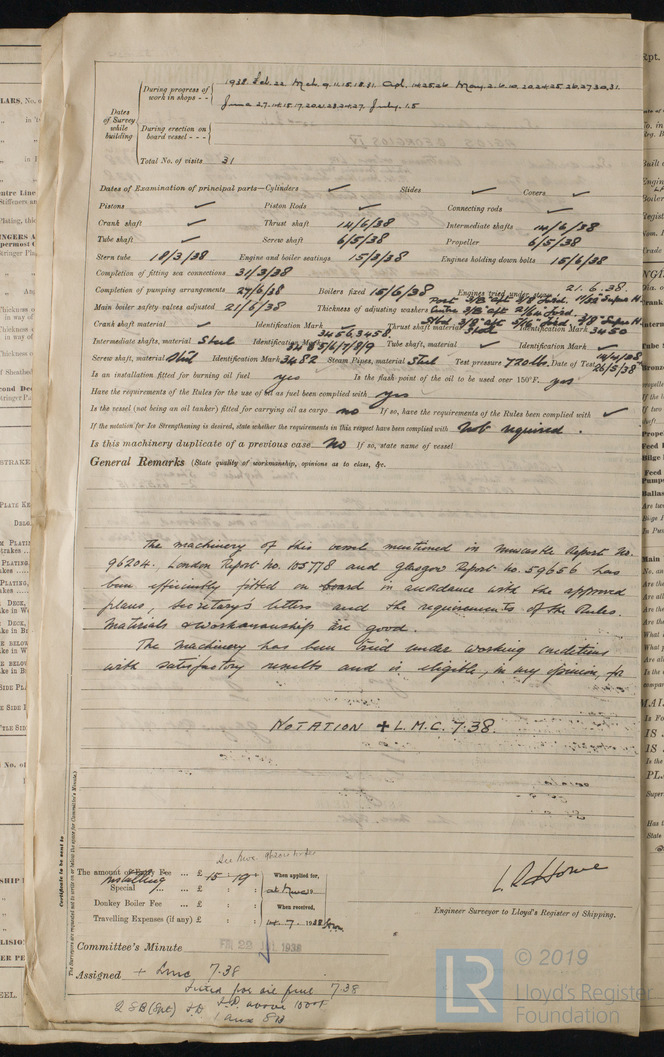 Dates of Survey while building
During progress of work in shops - -
1938. Feb. 22 Mch. 9. 11. 15. 18. 31. Apl. 14. 25. 26. May. 2. 6. 10. 20. 24. 25. 26. 27. 30. 31.
During erection on board vessel - - -
Total No. of visits 31
Dates of Examination of principal parts—Cylinders ✓ Slides ✓ Covers ✓
Pistons ✓ Piston Rods ✓ Connecting rods ✓
Crank shaft ✓ Thrust shaft 14/6/38 Intermediate shafts 14/6/38
Tube shaft ✓ Screw shaft 6/5/38 Propeller 6/5/38
Stern tube 18/3/38 Engine and boiler seatings 15/3/38 Engines holding down bolts 15/6/38
Completion of fitting sea connections 31/3/38
Completion of pumping arrangements 27/6/38 Boilers fixed 15/6/38 Engines tried under steam 21.6.38.
Main boiler safety valves adjusted 21/6/38 Thickness of adjusting washers
Crank shaft material ✓ Identification Mark ✓ Thrust shaft material Steel Identification Mark 3450
Intermediate shafts, material Steel Identification Marks Tube shaft, material ✓ Identification Mark ✓
Screw shaft, material Steel Identification Mark 3482 Steam Pipes, material Steel Test pressure 720 lbs. Date of Test 26/5/38
Is an installation fitted for burning oil fuel yes Is the flash point of the oil to be used over 150°F. yes
Have the requirements of the Rules for the use of oil as fuel been complied with yes
Is the vessel (not being an oil tanker) fitted for carrying oil as cargo no If so, have the requirements of the Rules been complied with ✓
If the notation for Ice Strengthening is desired, state whether the requirements in this respect have been complied with Not required.
Is this machinery duplicate of a previous case No If so, state name of vessel
General Remarks (State quality of workmanship, opinions as to class, &c.
The machinery of this vessel mentioned in Newcastle Report No.
96204. London Report No. 105778 and Glasgow Report No. 59656 has
been efficiently fitted on board in accordance with the approved
plans, Secretary's letters and the requirements of the Rules.
Materials & workmanship are good.
The machinery has been tried under working conditions
with satisfactory results and is eligible, in my opinion, for
NOTATION + L.M.C. 7.38.
The amount of Fee ... £ 15 : 19 :
Installing
Special ... £ : :
Donkey Boiler Fee ... £ : :
Travelling Expenses (if any) £ : :
When applied for,
When received,
14.7.1938
Engineer Surveyor to Lloyd's Register of Shipping.
Committee's Minute FRI 22 JUL 1938
Assigned + Lmc 7.38
Fitted for oil fuel 7.38
F.P. above 150°F
Certificate to be sent to
The Surveyors are requested not to write on or below the space for Committee's Minute.
© 2019
LR
Lloyd's Register
Foundation